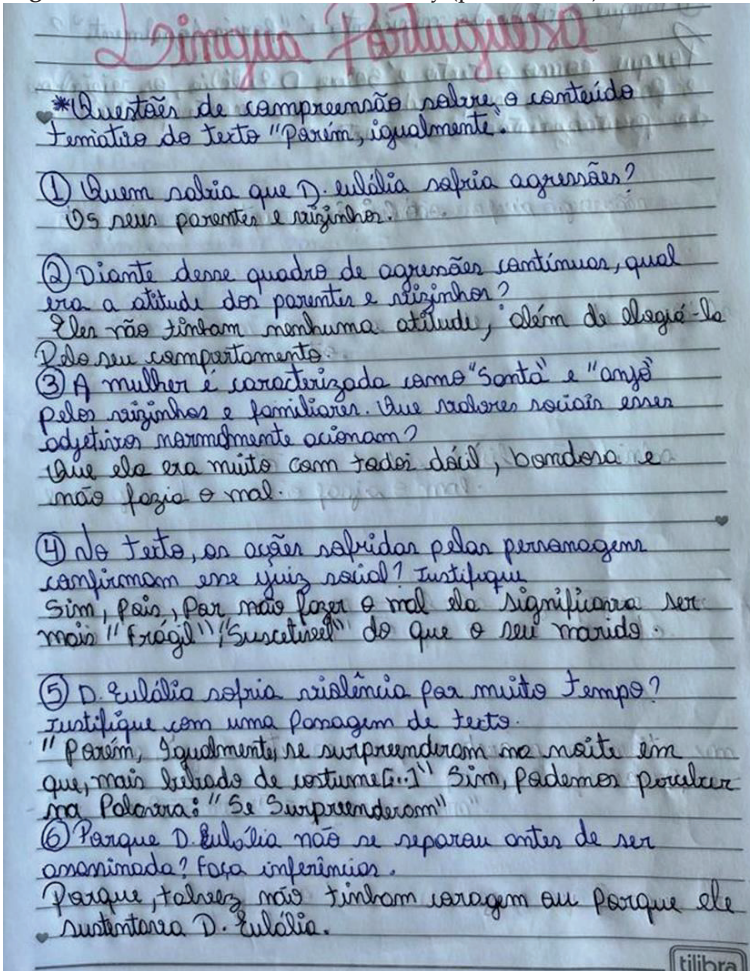 Língua Portuguesa
*Questões de compreensão sobre o conteúdo
temático do texto "Porém, igualmente".
① Quem sabia que D. eulália sofria agressões?
Os seus parentes e vizinhos.
② Diante desse quadro de agressões contínuas, qual
era a atitude dos parentes e vizinhos?
Eles não tinham nenhuma atitude, além de elogiá-la
Pelo seu comportamento.
③ A mulher é caracterizada como "Santa" e "anjo"
pelos vizinhos e familiares. Que valores sociais esses
adjetivos normalmente acionam?
Que ela era muito com todos dócil, bondosa e
não fazia o mal.
④ No texto, as ações sofridas pelas personagens
confirmam esse juiz social? Justifique
Sim, Pois, Por não fazer o mal ela significava ser
mais "Frágil", "Suscetível" do que o seu marido.
⑤ D. Eulália sofria violência por muito tempo?
Justifique com uma Passagem de texto.
"Porém, Igualmente, se surpreenderam na noite em
que, mais bebado de costume[...]" Sim, Podemos perceber
na Palavra: "Se Surpreenderam"
⑥ Porque D. Eulália não se separou antes de ser
assassinada? Faça inferências.
Porque, talvez não tinham coragem ou Porque ele
sustentava D. Eulália.
tilibra